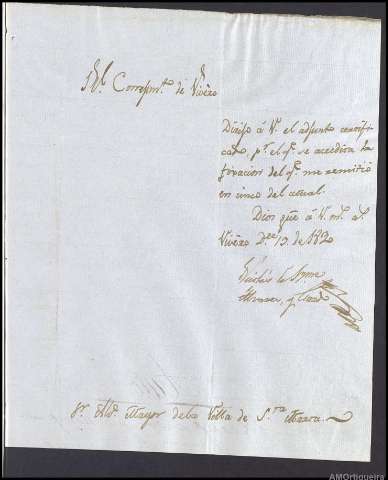 El Correxmto. de Vivero
Dirijo á V. el adjunto certifi-
cado, pr. el qe. se acredita la
fixacion del qe. me remitió
en cinco del actual.
Dios gue. á V. ms. as.
Vivero Dre. 19 de 1820
Sr. Alde. Mayor dela Villa de Sta. Marta
AMOrtigueira